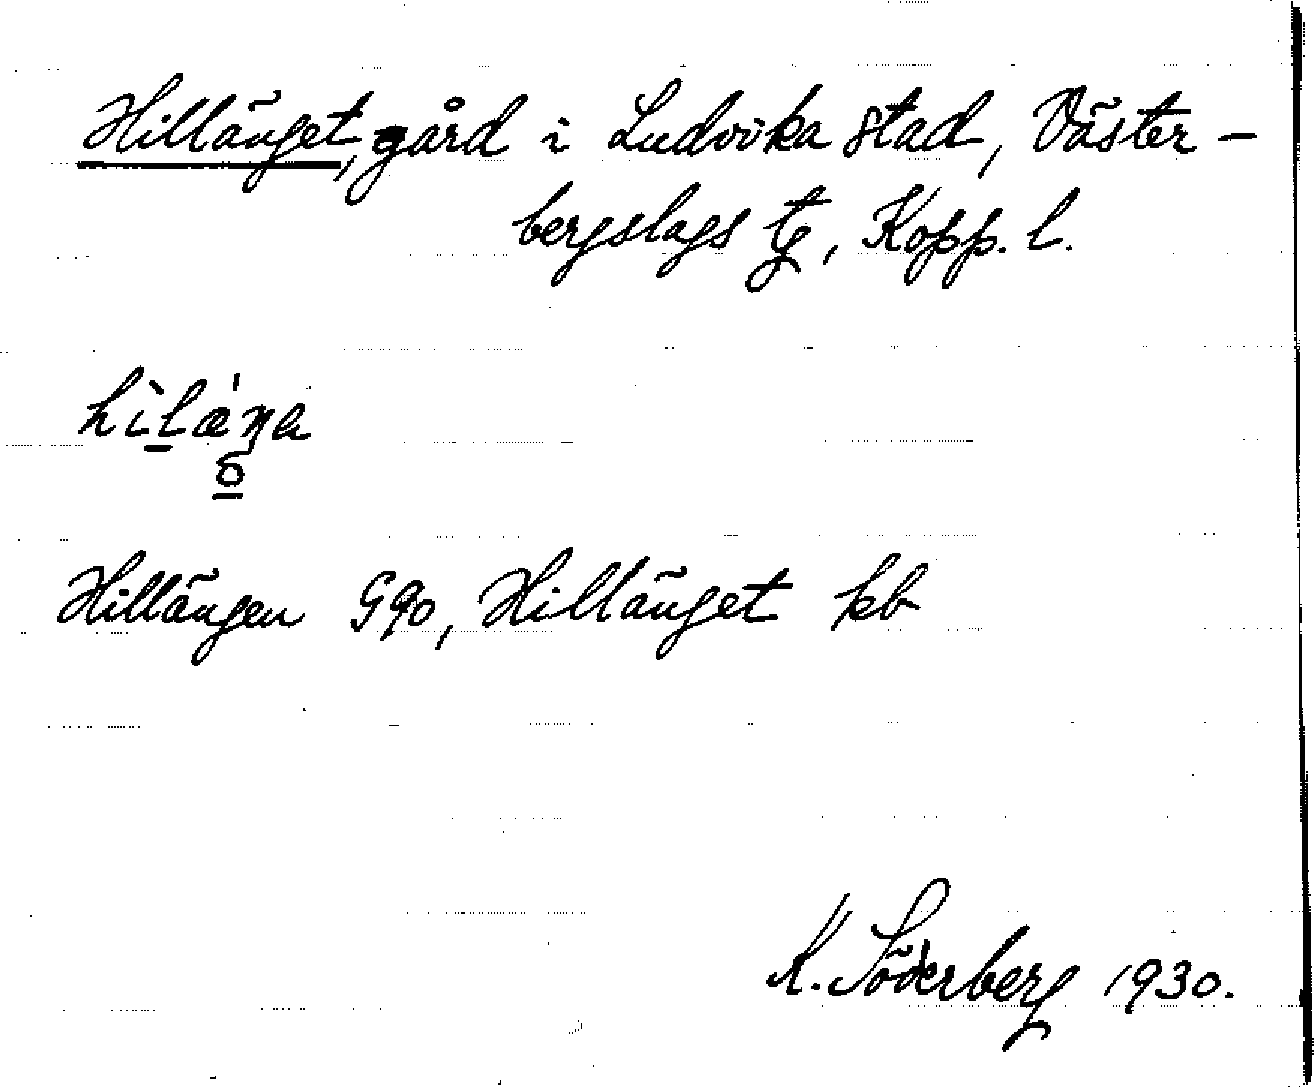 Hillänget, gård i Ludvika stad, Väster-
bergslags tg, Kopp. l.
hìlǽŋa
Hillängen G90, Hillänget kb
K. Söderberg 1930.